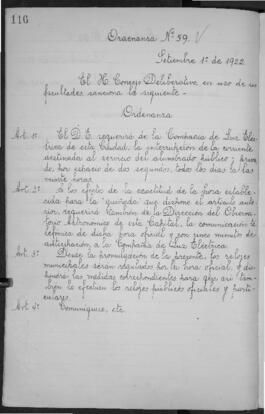 116
Ordenanza Nº 59.
Setiembre 1º de 1922
El H. Consejo Deliberativo en uso de sus
facultades sanciona la siguiente -
Ordenanza
Art. 1º. El D.E. requerirá de la Compañía de Luz Eléc-
trica de esta Ciudad, la interrupción de la corriente
destinada al servicio del alumbrado público y priva-
do, por espacio de dos segundos, todos los días a las
veinte horas.
Art. 2º. A los efectos de la exactitud de la hora estable-
cida para la "guiñada" que dispone el artículo ante-
rior, requerirá también de la Dirección del Observa-
torio Astronómico de esta Capital, la comunicación te-
lefónica de dicha hora oficial y con cinco minutos de
anticipación, a la Compañía de Luz Eléctrica.
Art. 3º. Desde la promulgación de la presente, los relojes
municipales serán regulados por la hora oficial, y dis-
pondrá las medidas correspondientes para que así tam-
bién lo efectúen los relojes públicos oficiales y parti-
culares.
Art. 4º. Comuníquese, etc.